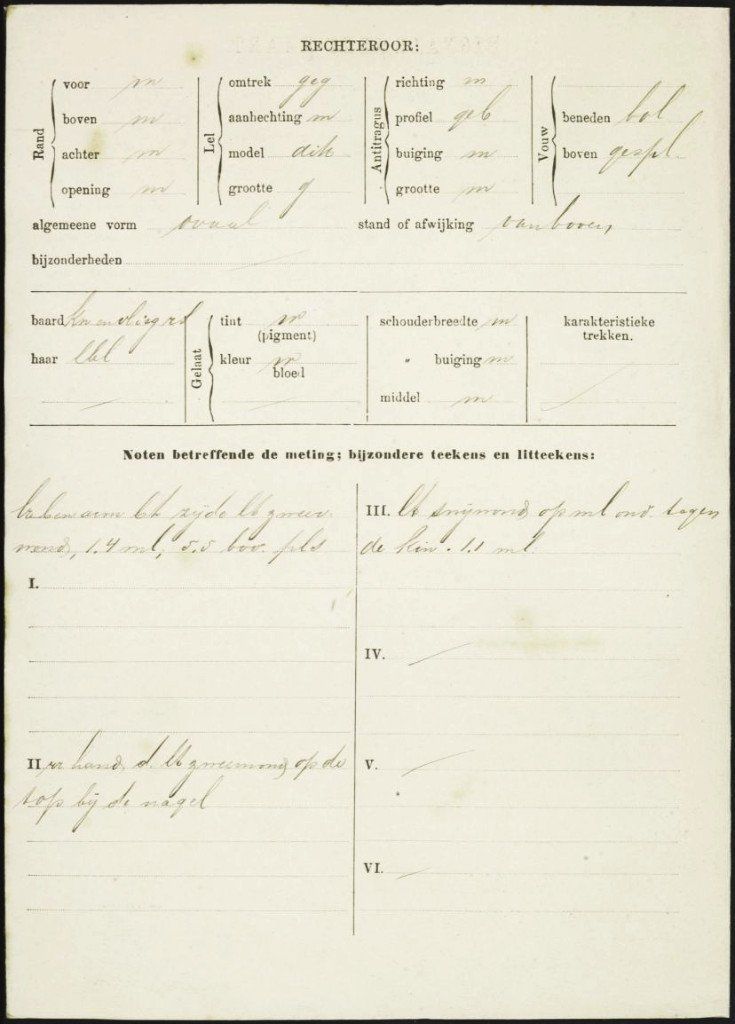 RECHTEROOR:
Rand
voor m
boven m
achter m
opening m
Lel
omtrek geg
aanhechting m
model dik
grootte g
Antitragus
richting m
profiel geb
buiging m
grootte m
Vouw
beneden bol
boven gespl.
algemeene vorm ovaal stand of afwijking van boven
bijzonderheden
baard
haar
Gelaat
tint m
(pigment)
kleur m
bloed
schouderbreedte m
" buiging m
middel m
karakteristieke
trekken.
Noten betreffende de meting; bijzondere teekens en litteekens:
zijde lt
wond, 1.4 ml, 5.5 bov. pls
I.
II hand d. lt op de
top bij de nagel
III. lt snijwond op ml ond. tegen
de kin. 1.1 ml.
IV.
V.
VI.